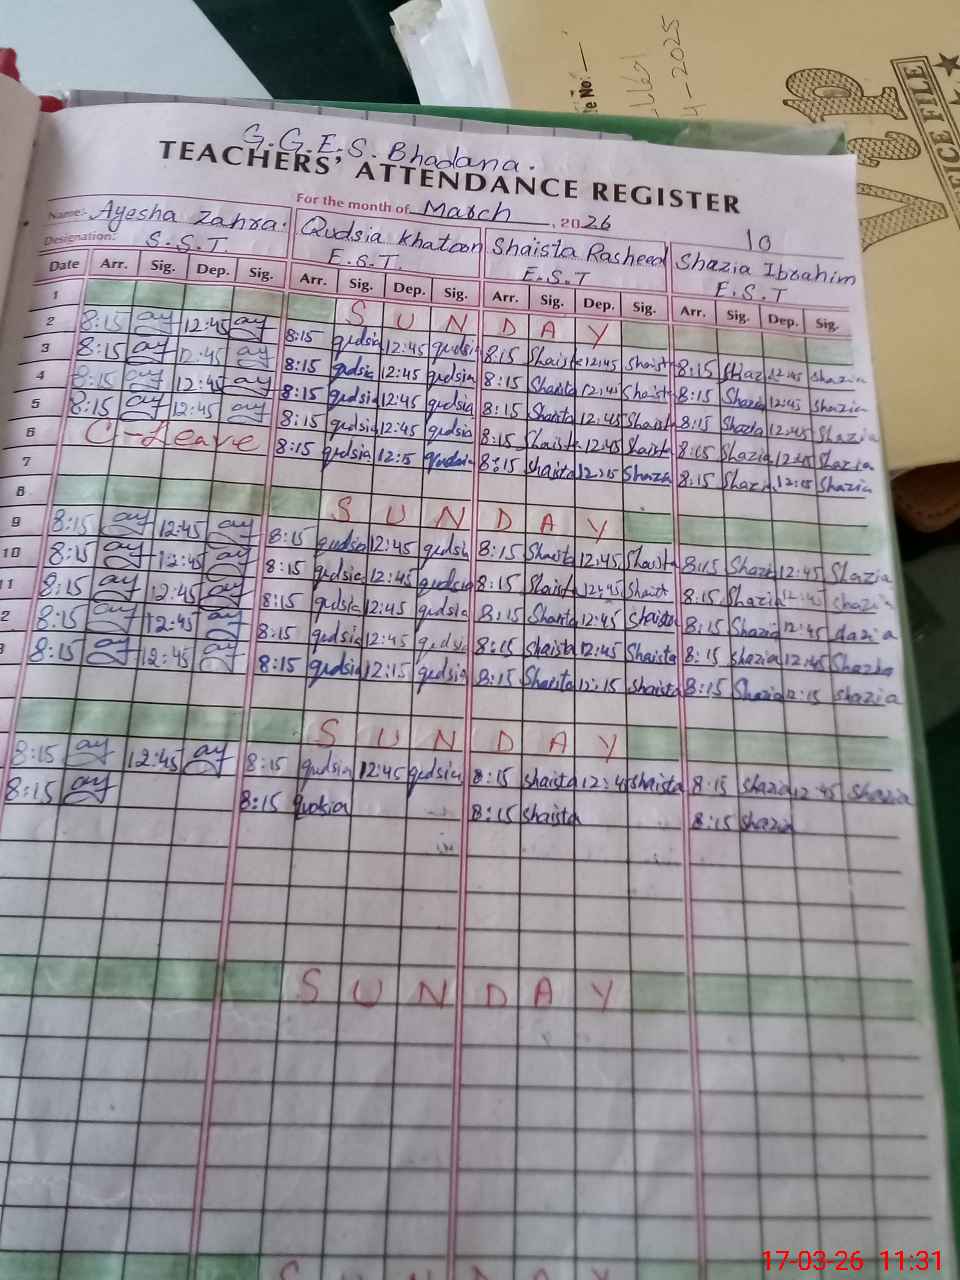 G.G.E.S. Bhadana.
TEACHERS' ATTENDANCE REGISTER
For the month of March, 2026
10
Name:- Ayesha Zahra. Qudsia Khatoon Shaista Rasheed Shazia Ibrahim
Designation: S.S.T E.S.T. E.S.T E.S.T
Date Arr. Sig. Dep. Sig. Arr. Sig. Dep. Sig. Arr. Sig. Dep. Sig. Arr. Sig. Dep. Sig.
1 SUNDAY
2 8:15 ay 12:45 ay 8:15 qudsia 12:45 qudsia 8:15 Shaista 12:45 Shaista 8:15 Shazia 12:45 Shazia
3 8:15 ay 12:45 ay 8:15 qudsia 12:45 qudsia 8:15 Shaista 12:45 Shaista 8:15 Shazia 12:45 Shazia
4 8:15 ay 12:45 ay 8:15 qudsia 12:45 qudsia 8:15 Shaista 12:45 Shaista 8:15 Shazia 12:45 Shazia
5 8:15 ay 12:45 ay 8:15 qudsia 12:45 qudsia 8:15 Shaista 12:45 Shaista 8:15 Shazia 12:45 Shazia
6 C-Leave 8:15 qudsia 12:15 qudsia 8:15 Shaista 12:15 Shazia 8:15 Shazia 12:15 Shazia
7
8 SUNDAY
9 8:15 ay 12:45 ay 8:15 qudsia 12:45 qudsia 8:15 Shaista 12:45 Shaista 8:15 Shazia 12:45 Shazia
10 8:15 ay 12:45 ay 8:15 qudsia 12:45 qudsia 8:15 Shaista 12:45 Shaista 8:15 Shazia 12:45 Shazia
11 8:15 ay 12:45 ay 8:15 qudsia 12:45 qudsia 8:15 Shaista 12:45 shaista 8:15 Shazia 12:45 dazia
2 8:15 ay 12:45 ay 8:15 qudsia 12:45 qudsia 8:15 Shaista 12:45 Shaista 8:15 shazia 12:45 Shazia
3 8:15 ay 12:45 ay 8:15 qudsia 12:15 qudsia 8:15 Shaista 12:15 shaista 8:15 Shazia 12:15 shazia
SUNDAY
8:15 ay 12:45 ay 8:15 qudsia 12:45 qudsia 8:15 shaista 12:45 shaista 8:15 shazia 12:45 shazia
8:15 ay 8:15 qudsia 8:15 shaista 8:15 shazia
SUNDAY
SUNDAY
le No:-
4-2025
ICE FILE
17-03-26 11:31